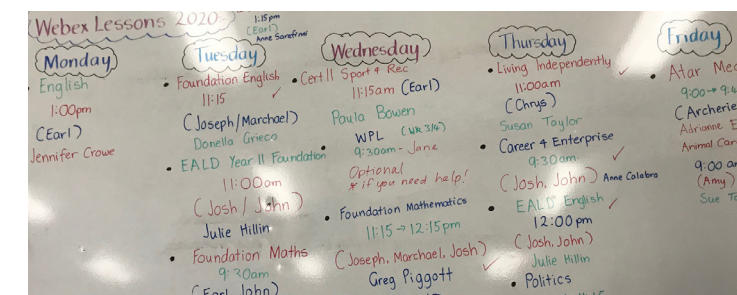 Webex Lessons 2020
1:15pm
(Earl)
Anne
Monday
• English
1:00pm
(Earl)
Jennifer Crowe
Tuesday
• Foundation English
11:15
(Joseph/Marchael)
Donella Grieco
• EALD Year 11 Foundation
11:00am
(Josh / John)
Julie Hillin
• Foundation Maths
9:30am
(Earl, John)
Wednesday
• Cert II Sport & Rec
11:15am (Earl)
Paula Bowen
• WPL (WK 3/4)
9:30am - Jane
Optional
* if you need help!
• Foundation Mathematics
11:15 → 12:15pm
(Joseph, Marchael, Josh)
Greg Piggott
Thursday
• Living Independently
11:00am
(Chrys)
Susan Taylor
• Career & Enterprise
9:30am
(Josh, John) Anne Calabro
• EALD English
12:00pm
(Josh, John)
Julie Hillin
• Politics
Friday
• Atar
9:00 →
(Archerie
Adrianne
Animal
9:00
(Amy)
Sue